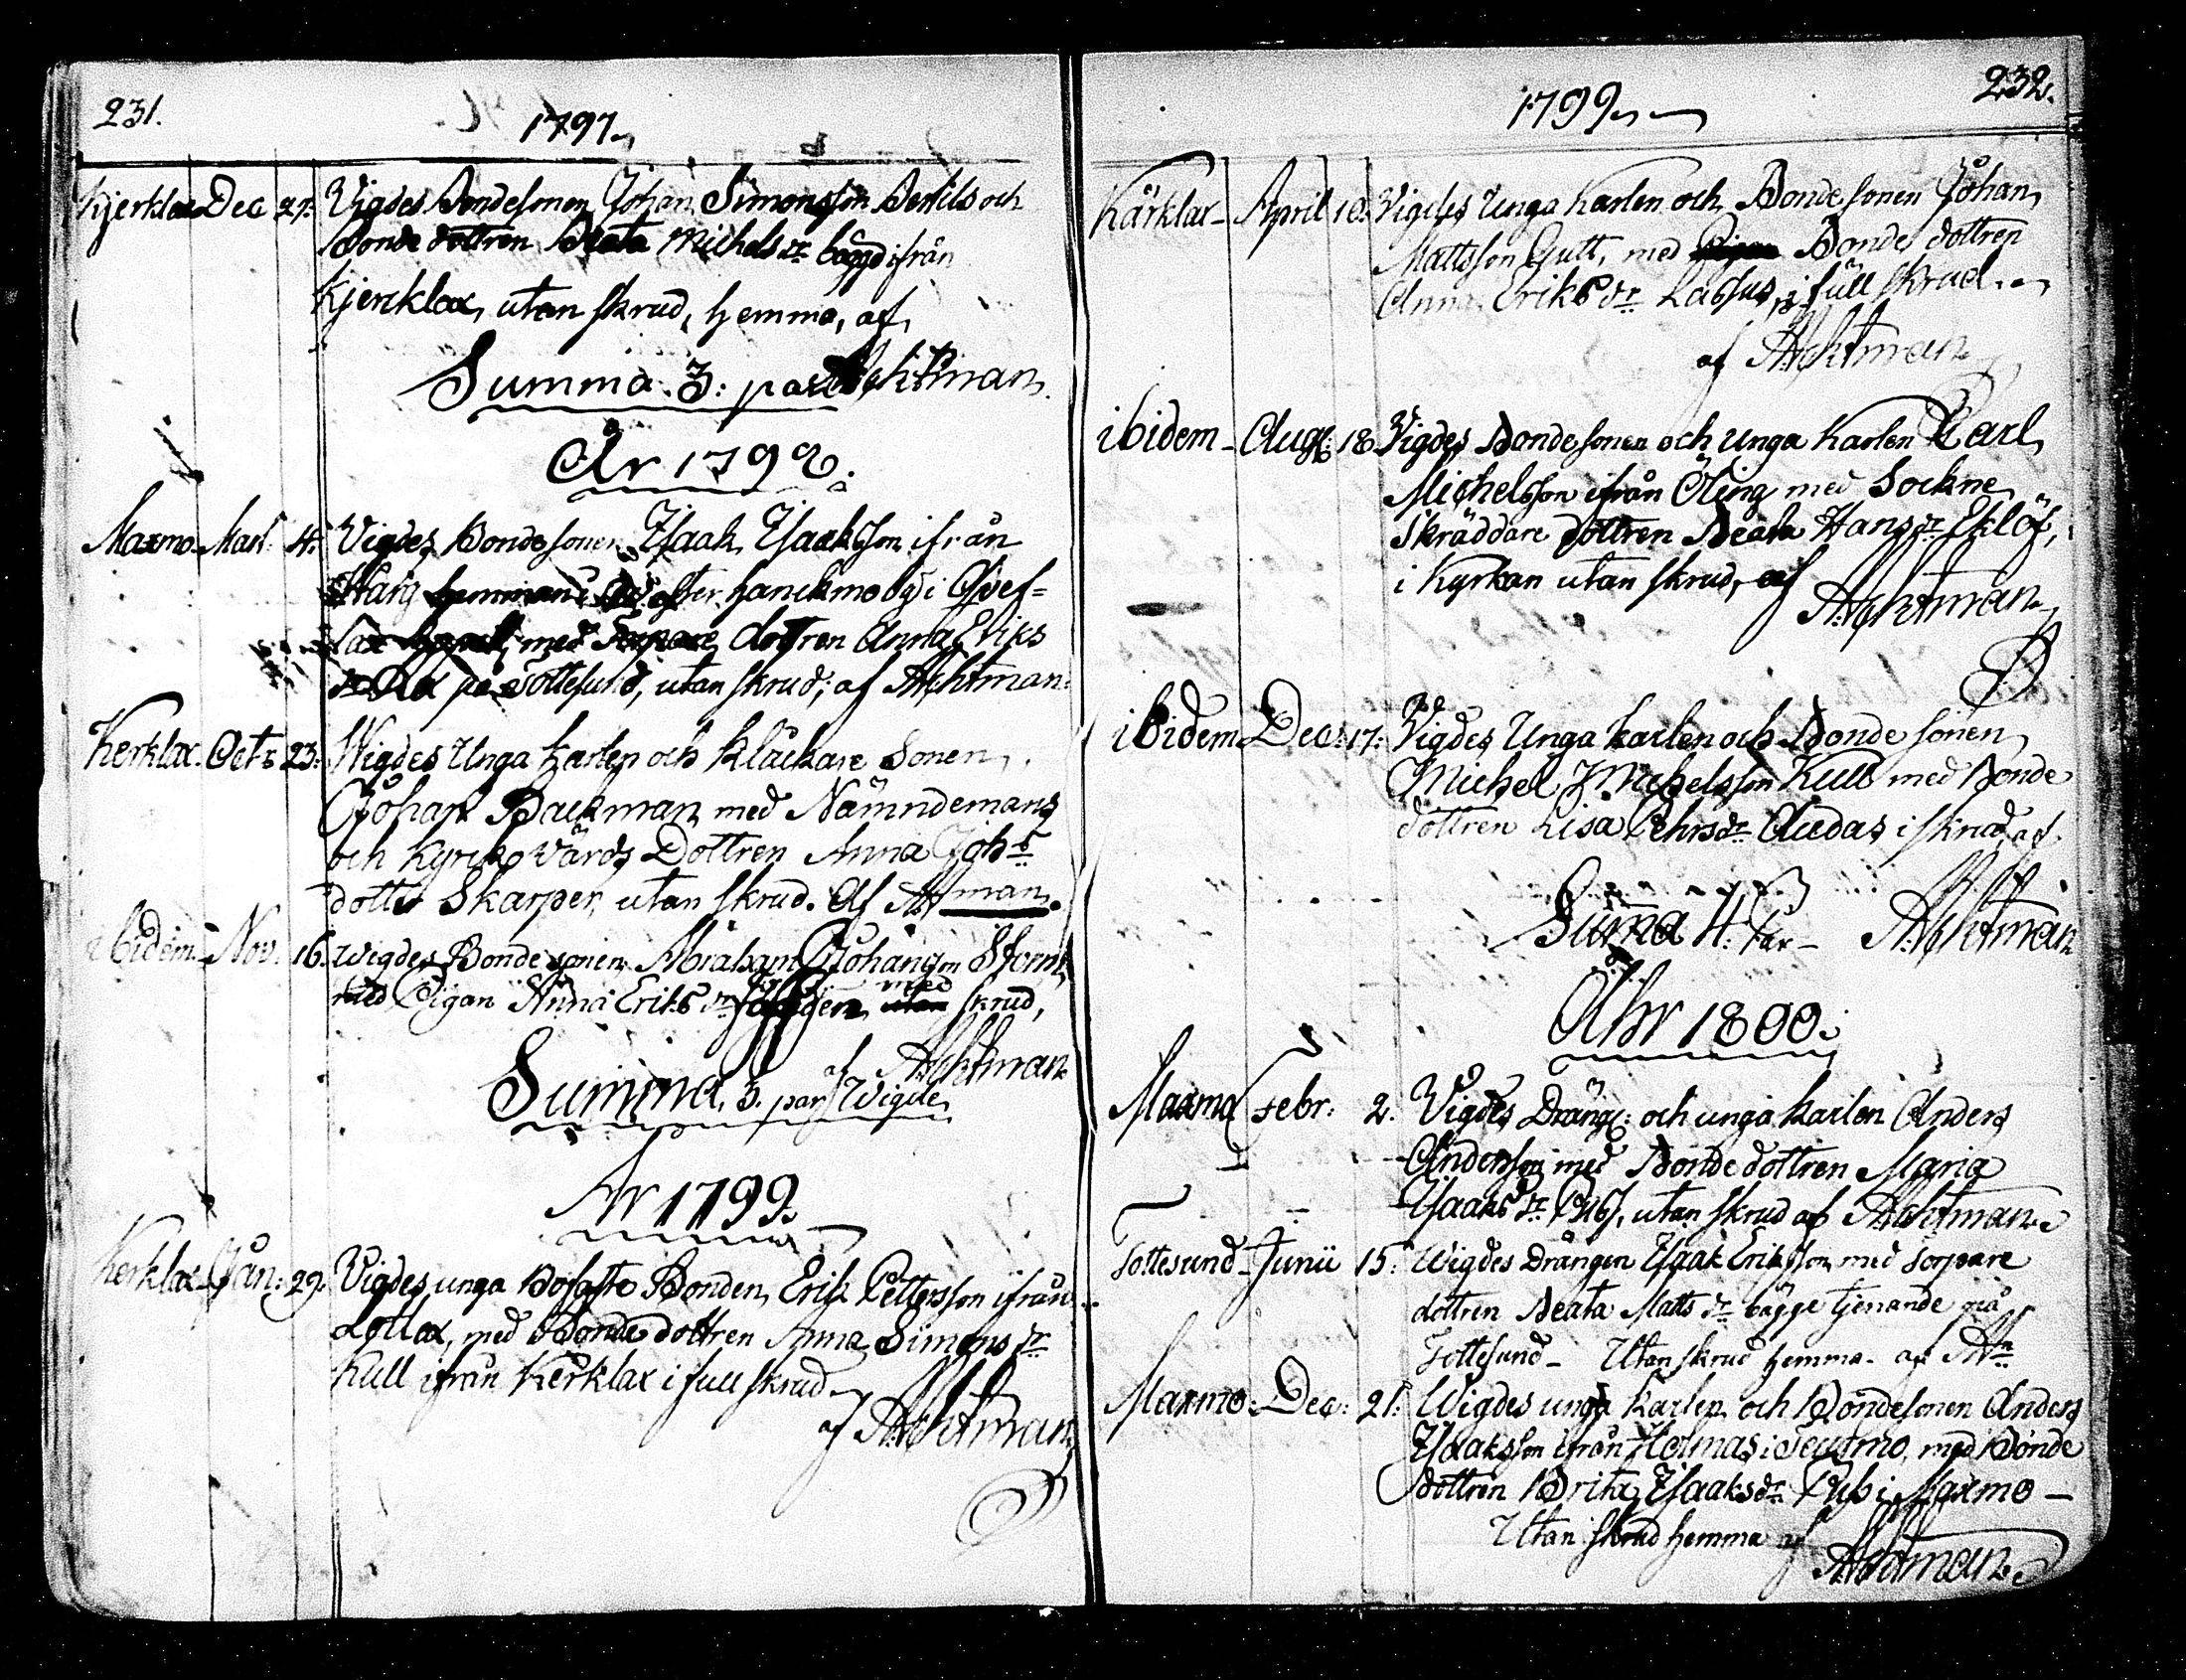 231.
1797.
Kjerklax Dec 27: Vigdes Bondesonen Johan Simonsson Bertils och
Bonde dottren Beata Michelsdr bägge ifrån
Kjerklax, utan skrud, hemma, af
Summa 3: par Achtman
År 1798.
Maxmo Mart: 4: Vigdes Bondesonen Isaak Isaksson ifrån
Hanckmo by i Qvef-
lax med Torpare dottren Anna Eriks
dr på Tottesund, utan skrud, af Achtman
Kerklax. Octr 23: Wigdes Unga karlen och Kläckare Sonen
Johan Backman med Nämndemans
och Kyrckovärds Dottren Anna Johs
dotter Skarper, utan skrud. Af Achtman.
ibidem Nov. 16. Wigdes Bondesonen Abraham Johansson Storm
med Pigan Anna Eriks dr med skrud,
af Achtman
Summa, 3. par Wigde
År 1799.
Kerklax Jan: 29. Vigdes unga Bofaste Bonden Erik Pettersson ifrån
Lollax, med Bonde dottren Anna Simons dr
Kull ifrån Kerklax i full skrud
af Achtman
232.
1799.
Kärklax April 10. Vigdes Unga karlen och Bonde sonen Johan
Mattsson Gutt, med Bonde dottren
Anna Eriks dr Lassus, i full skrud
af Achtman
ibidem Aug: 18 Vigdes Bonde sonen och Unga karlen Carl
Michelsson ifrån Öling med Sockne
skräddare dottren Beata Hans dr Eklöf,
i Kyrkan utan skrud, af
Achtman
ibidem Dec: 17: Vigdes Unga karlen och Bonde sonen
Michel Michelsson Kull med Bonde
dottren Lisa Pehrs dr Audas i skrud, af
Suma 4: Par Achtman
Åhr 1800.
Maxmo Febr: 2. Vigdes Dräng: och unga karlen Anders
Andersson med Bonde dottren Maria
Isaaks dr Pus, utan skrud af Achtman
Tottesund Junii 15: Wigdes Drängen Isaak Eriksson med Torpare
dottren Beata Matts dr bägge tjenande på
Tottesund _ Utan skrud hemma. af An
Maxmo: Dec: 21: Wigdes unga karlen och Bondesonen Anders
Isaaksson ifrån Holmas i Teugmo, med Bonde
dottren Brita Isaaksdr Pus i Maxmo _
Utan skrud hemma af
Achtman